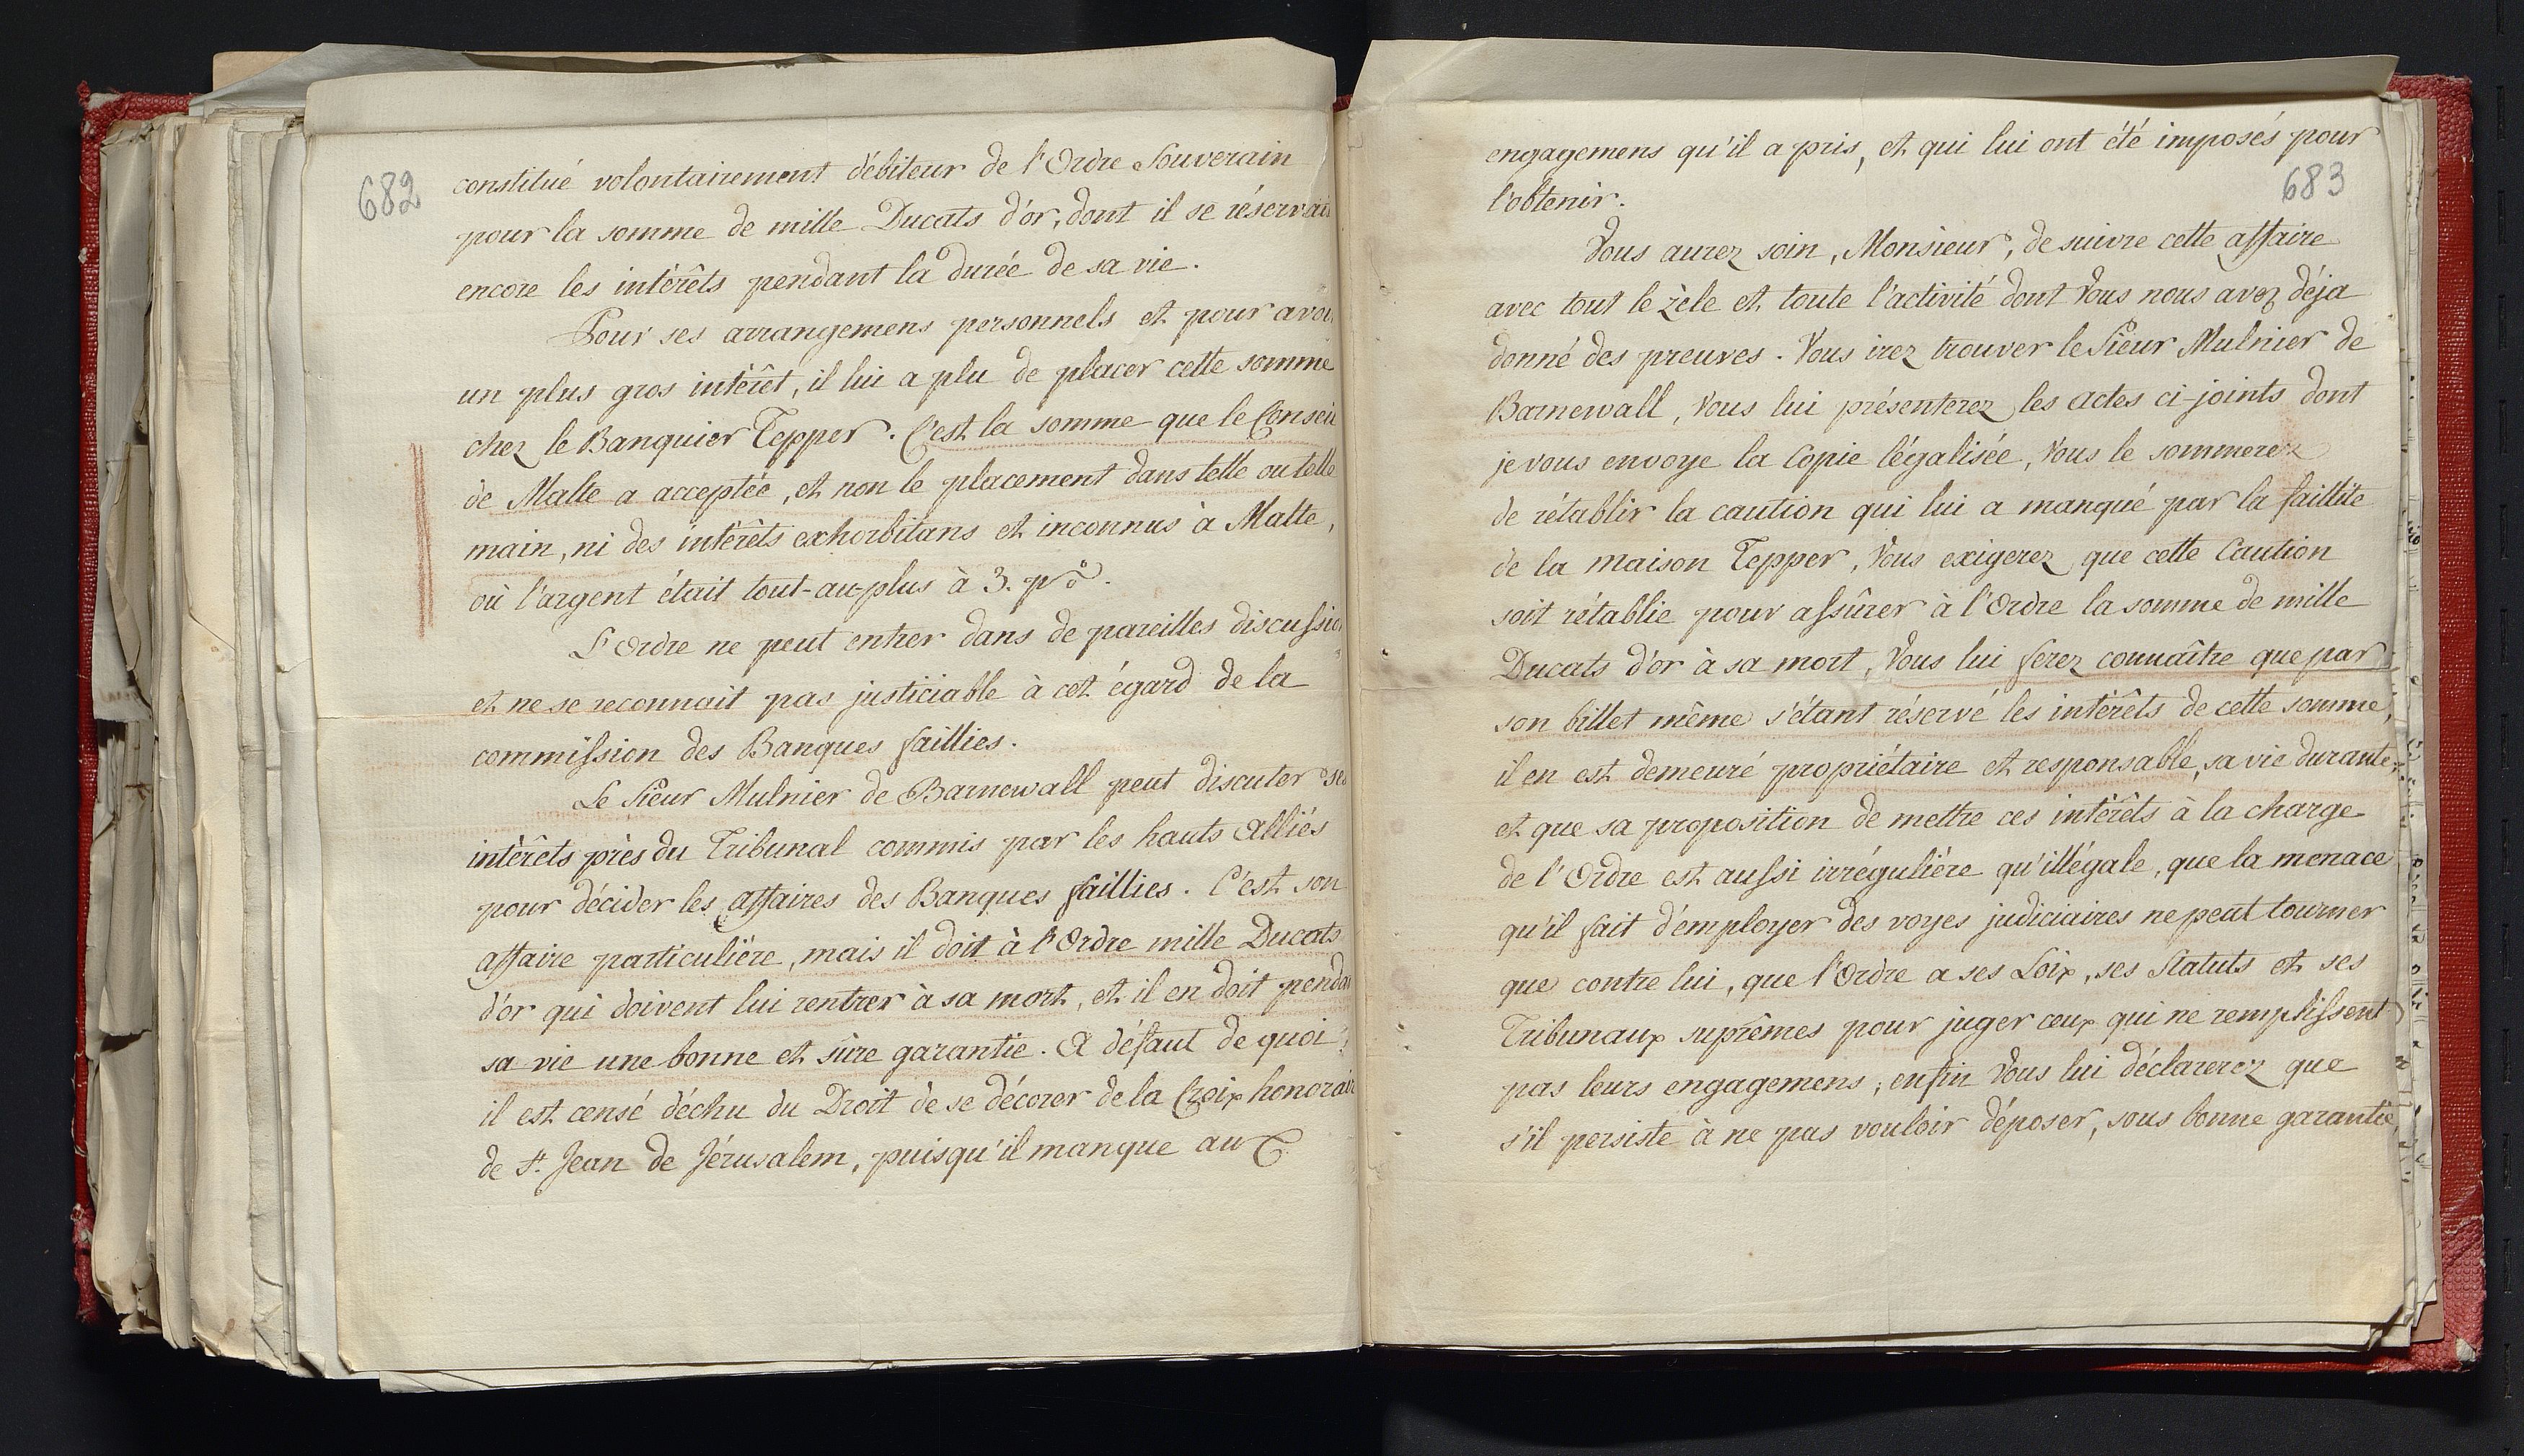 682
constitué volontairement débiteur de l'Ordre Souverain
pour la somme de mille Ducats d'or, dont il se réservai
encore les intérêts pendant la durée de sa vie.
Pour ses arrangemens personnels et pour avoi
un plus gros intérêt, il lui a plu de placer cette somme
chez le Banquier Tepper. C'est la somme que le Conseil
de Malte a acceptée, et non le placement dans telle ou telle
main, ni des intérêts exhorbitans et inconnus à Malte,
où l'argent était tout-au-plus à 3. p%.
L'Ordre ne peut entrer dans de pareilles discussio
et ne se reconnait pas justiciable à cet égard de la
commission des Banques faillies.
Le Sieur Mulnier de Barnewall peut discuter ses
intérêts près du Tribunal commis par les hauts Alliés
pour décider les affaires des Banques faillies. C'est son
affaire particulière, mais il doit à l'Ordre mille Ducats
d'or qui doivent lui rentrer à sa mort, et il en doit penda
sa vie une bonne et sûre garantie. A défaut de quoi
il est censé déchu du Droit de se décorer de la Croix honorair
de St. Jean de Jérusalem, puisqu'il manque aux
683
engagemens qu'il a pris, et qui lui ont été imposés pour
l'obtenir.
Vous aurez soin, Monsieur, de suivre cette affaire
avec tout le zèle et toute l'activité dont Vous nous avez déja
donné des preuves. Vous irez trouver le Sieur Mulnier de
Barnewall, Vous lui présenterez les actes ci-joints dont
je vous envoye la Copie légalisée, Vous le sommerez
de rétablir la caution qui lui a manqué par la faillite
de la maison Tepper, Vous exigerez que cette Caution
soit rétablie pour assûrer à l'Ordre la somme de mille
Ducats d'or à sa mort, Vous lui ferez connaître que par
son billet même s'étant réservé les intérêts de cette somme,
il en est demeuré propriétaire et responsable, sa vie durante,
et que sa proposition de mettre ces intérêts à la charge
de l'Ordre est aussi irrégulière qu'illégale, que la menace
qu'il fait d'employer des voyes judiciaires ne peut tourner
que contre lui, que l'Ordre a ses Loix, ses Statuts et ses
Tribunaux suprêmes pour juger ceux qui ne remplissent
pas leurs engagemens; enfin Vous lui déclarerez que
s'il persiste à ne pas vouloir déposer, sous bonne garantie,